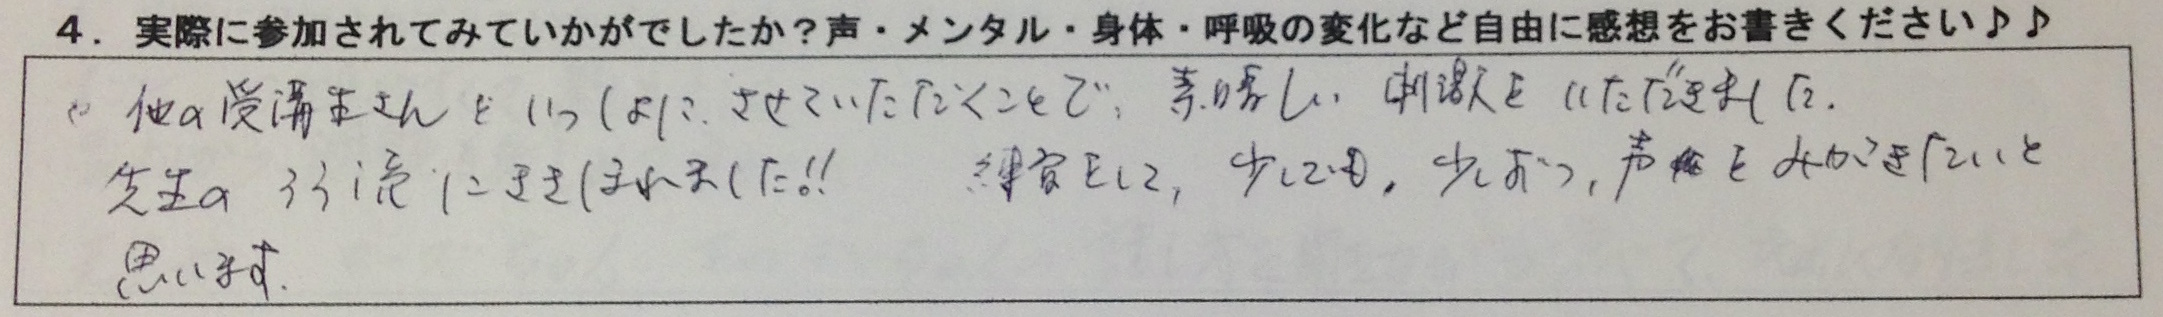 4．実際に参加されてみていかがでしたか？声・メンタル・身体・呼吸の変化など自由に感想をお書きください♪♪
他の受講生さんといっしょにさせていただくことで、素晴しい刺激をいただきました.
先生の 美声にききほれました!! 練習をして, 少しでも, 少しずつ, 声をみがきたいと
思います.